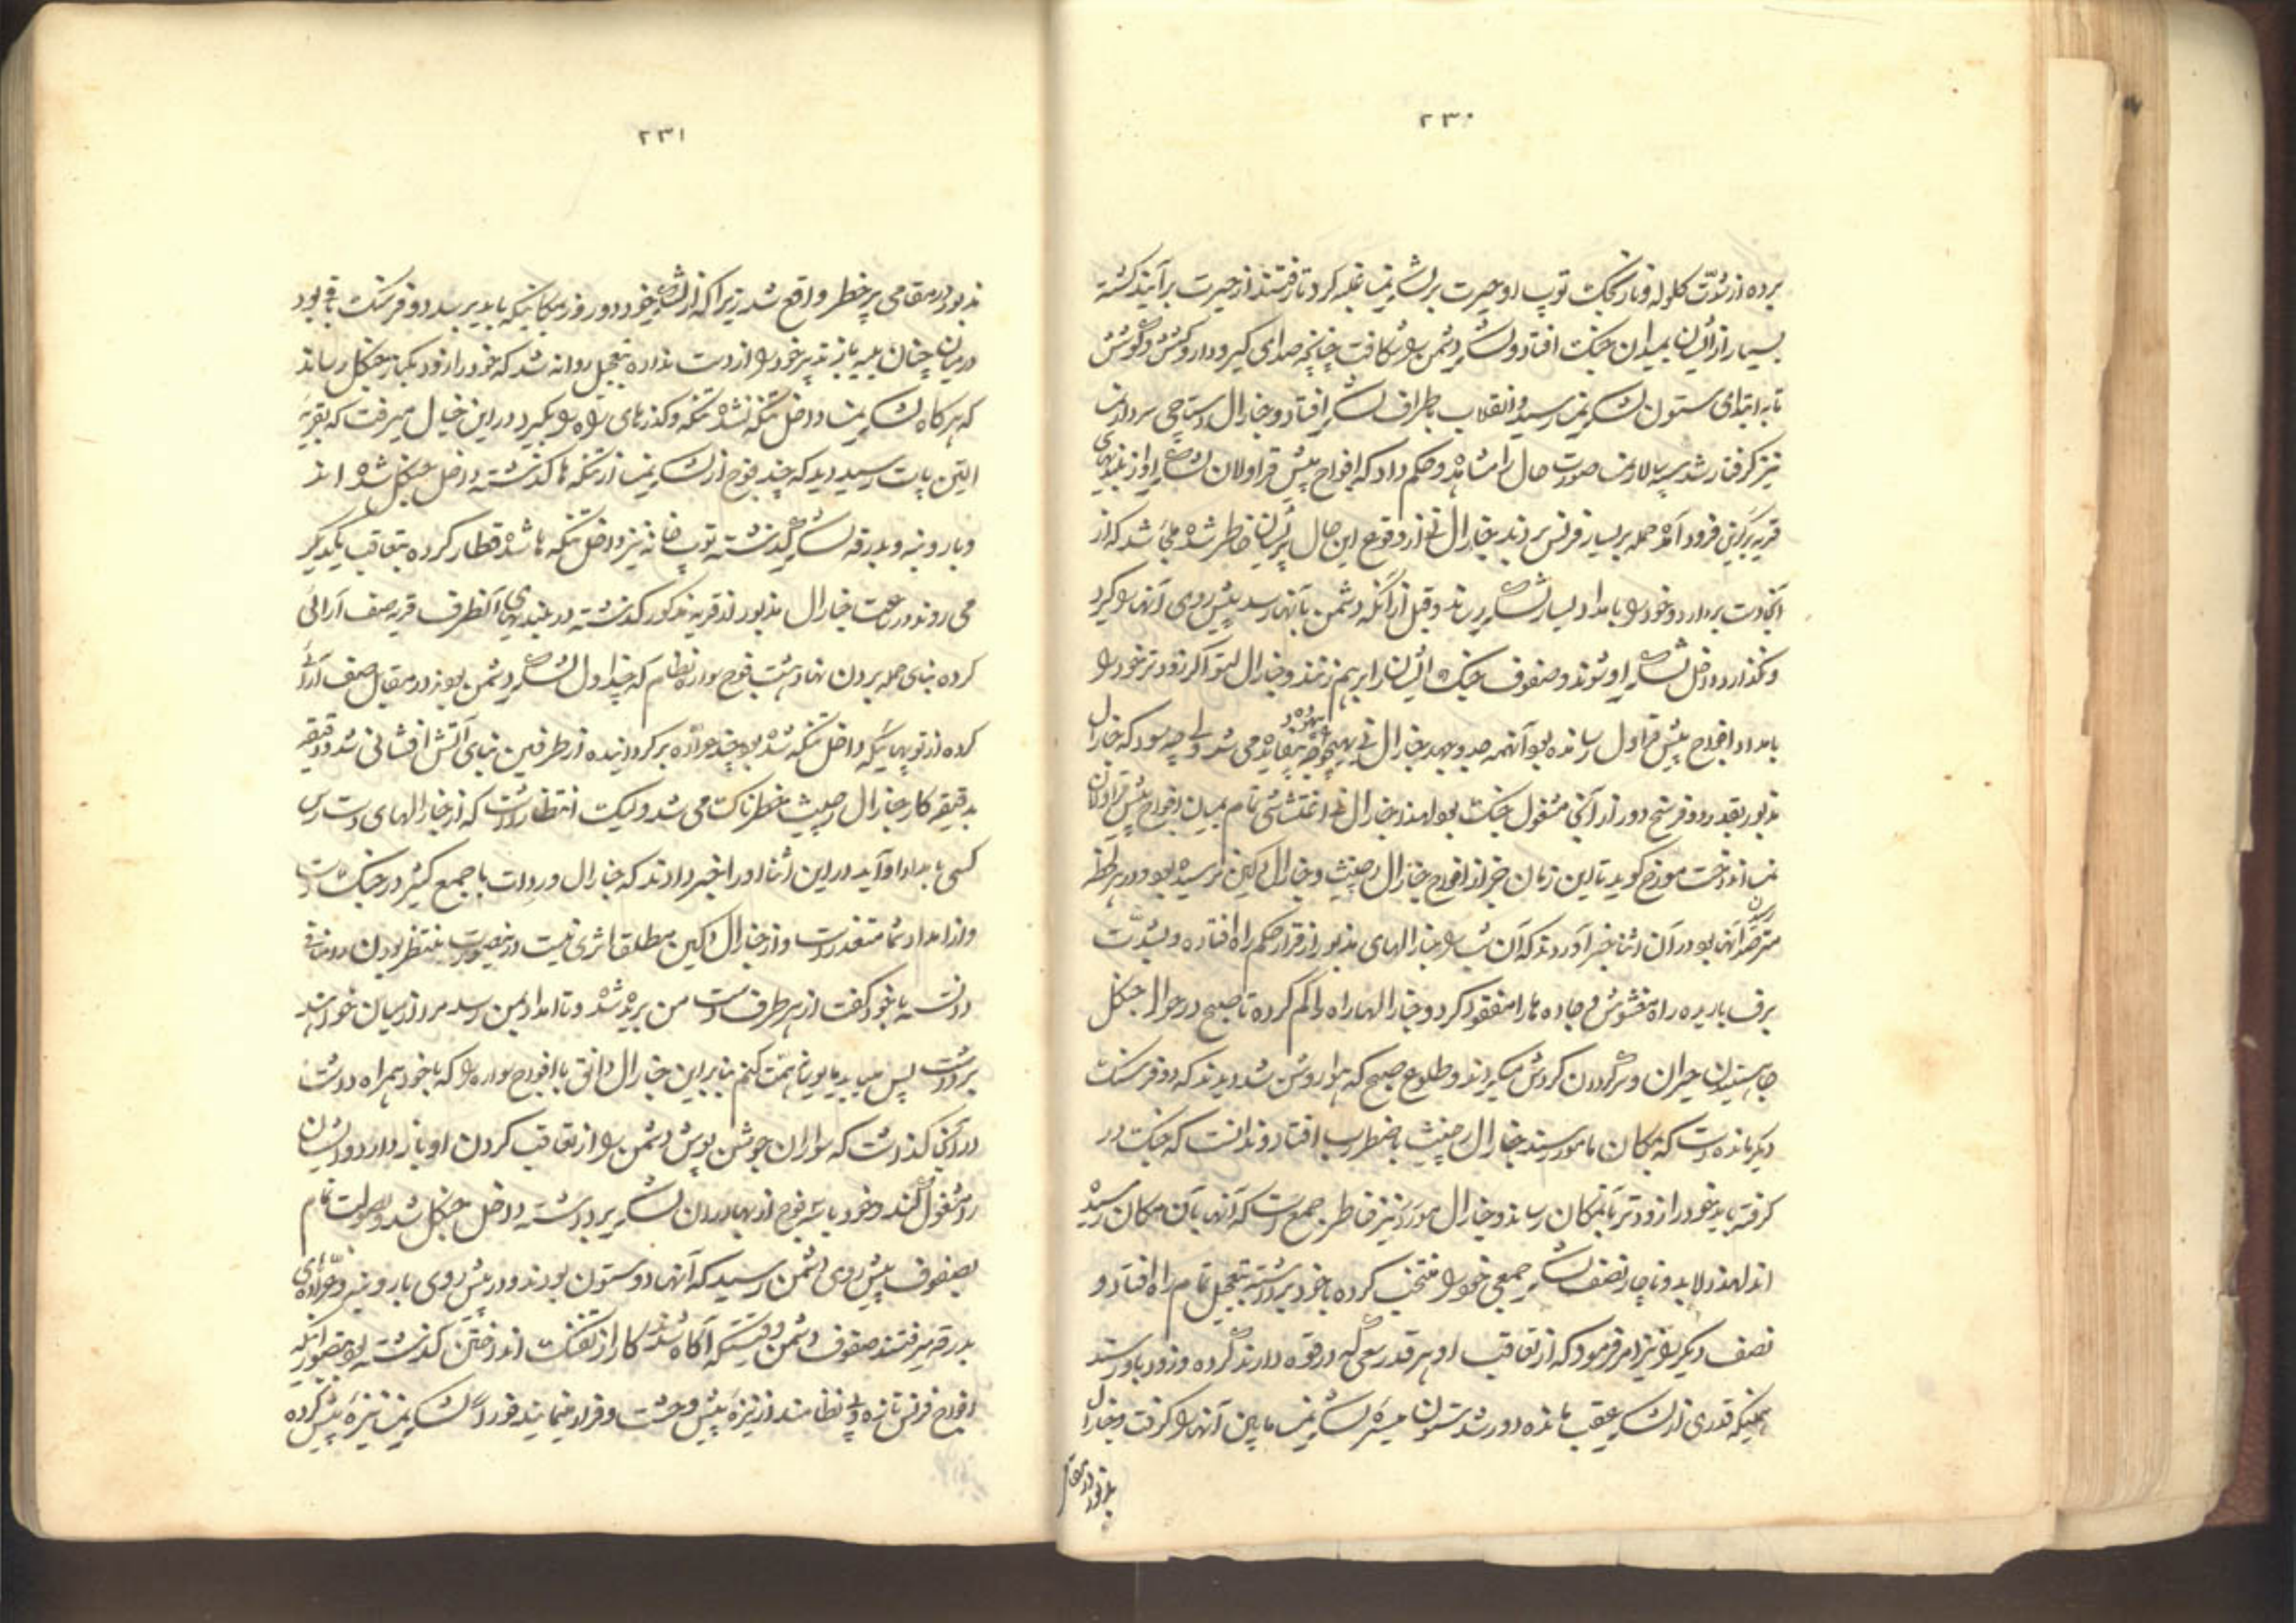 ۲۳۰
برده از شدّت کلوله و نارنجک توپ او حیرت بر لشکر نمسا غلبه کرد تا رفتند از حیرت برآیند کشته
بسیار از ایشان بمیدان جنک افتاد و لشکر دشمن را شکافت چنانچه صدای کیر و دار و کشش و کوشش
تا به ابتدای ستون لشکر نمسا رسید و انقلاب باطراف لشکر افتاد و جنارال
نیز کرفتار شد سپه سالار نمسا صورت حال را مشاهده و حکم داد که افواج پیش قراولان لشکر او از بلندیهای
قریه فرود آمده حمله بر یسار فرنس بردند جنارال نی از وقوع این حال پریشان خاطر شده ملجأ شد که از
آنجا دست بردارد و خود را بامداد یسار لشکر برساند و قبل از آنکه دشمن بآنها رسد پیش روی آنها را کیرد
و نکذارد داخل لشکر او شوند و صفوف جنک ایشان را برهم زنند و جنارال اکر زودتر خود را
بامداد افواج پیش قراول رسانده بود آنهمه جد و جهد جنارال نی بیهوده و بیفایده می شد ولی چه سود که جنارال
مذبور بقدر دو فرسخ دور از آنجا مشغول جنک بود لهذا جنارال نی اغتشاشی تمام بمیان افواج پیش قراولان
نمسا انداخت مورخ کوید تا این زمان خبر از افواج جنارال رصپنث و جنارال دکین نرسیده بود و در هر لحظه
مترصد رسیدن آنها بود در آن اثنا خبر آوردند که آن شب را جنارالهای مذبور از قرار حکم راه افتاده و بشدّت
برف باریده راه مغشوش و جاده ها را مفقود کرد و جنارالها راه را کم کرده تا صبح در حوال جنکل
حیران و سرکردان کردش میکردند و طلوع صبح که هوا روشن شد دیدند که دو فرسنک
دیکر مانده است که بمکان مامور رسیند جنارال رصپنث باضطراب افتاد و دانست که جنک در
کرفته باید خود را زودتر بآنمکان رساند و جنارال نیز خاطر جمع است که آنها بآن مکان رسیده
اند لهذا لابد و ناچار نصف لشکر جمعی خود را منتخب کرده با خود برداشته بتعجیل تمام راه افتاد و
نصف دیکر را نیز امر فرمود که از تعاقب او هر قدر سعی که در قوه دارند کرده و زود باو رسند
همینکه قدری از لشکر عقب مانده دور شد ستون میسره لشکر نمسا مابین آنها را کرفت و جنارال
مذبور در مقام
۲۳۱
مذبور در مقامی پر خطر واقع شد زیرا که از لشکر خود دور و از مکانیکه باید برسد دو فرسنک باقی بود
در میان چنان بلیه باز تدبیر خود را از دست نداده بتعجیل روانه شد که خود را زود یکبار بجنکل رساند
که هرکاه لشکر نمسا داخل تنکه نشده تنکه و کذرهای راه را بکیرد در این خیال میرفت که بقریه
رسید دید که چند فوج از لشکر نمسا از تنکه ها کذشته داخل جنکل شده اند
و بار و بنه و بدرقه لشکر کذشته توپخانه نیز داخل تنکه ها شده قطار کرده بتعاقب یکدیکر
می روند در ساعت جنارال مذبور از قریه مذکور کذشته در بلندیهای آنطرف قریه صف آرائی
کرده بنای حمله بردن نهاد هشت فوج سواره نظام که چنداول لشکر دشمن بودند در مقابل صف آرائی
کرده از توپهائیکه داخل تنکه شده بود چند عرّاده برکردانیده از طرفین بنای آتش افشانی شد دقیقه
بدقیقه کار جنارال رصپنث خطرناک می شد ولیکن انتظار داشت که از جنارالهای دست راس
کسی بامداد او آید در این اثنا او را خبر دادند که جنارال وردات با جمع کثیر در جنک است
و از امداد شما متعذر است و از جنارال دکین مطلقا اثری نیست در اینصورت منتظر بودن را منافی
دانسته با خود کفت از هر طرف دست من بریده شد و تا امداد بمن رسد مرا از میان خواهند
برداشت پس میباید تا بمن همت کنم بنابراین جنارال با افواج سواره را که با خود همراه داشت
در آنجا کذاشت که سواران جوشن پوش دشمن را از تعاقب کردن او باز دارد و ایشان
را مشغول کنند و خود با سه فوج از بهادران لشکر برداشته داخل جنکل شد و بصولت تمام
بصفوف پیش روی دشمن رسید که آنها دو ستون بودند و در پیش روی بار و بنه و عرّادهای
بدرقه میرفتند صفوف دشمن وقتیکه آکاه شدند کار از تفنک انداختن کذشته بود بتصور آنکه
افواج فرنس تازه و بی نظامند از نیزه پیش وحشت و فرار مینمایند فورا لشکر نمسا نیزه پیش کرده